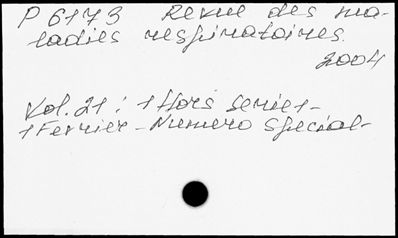 P 6173 Revue des ma-
ladies respiratoires
2004
Vol. 21 : 1 Hors serie 1-
1 Fevrier - Numero special-